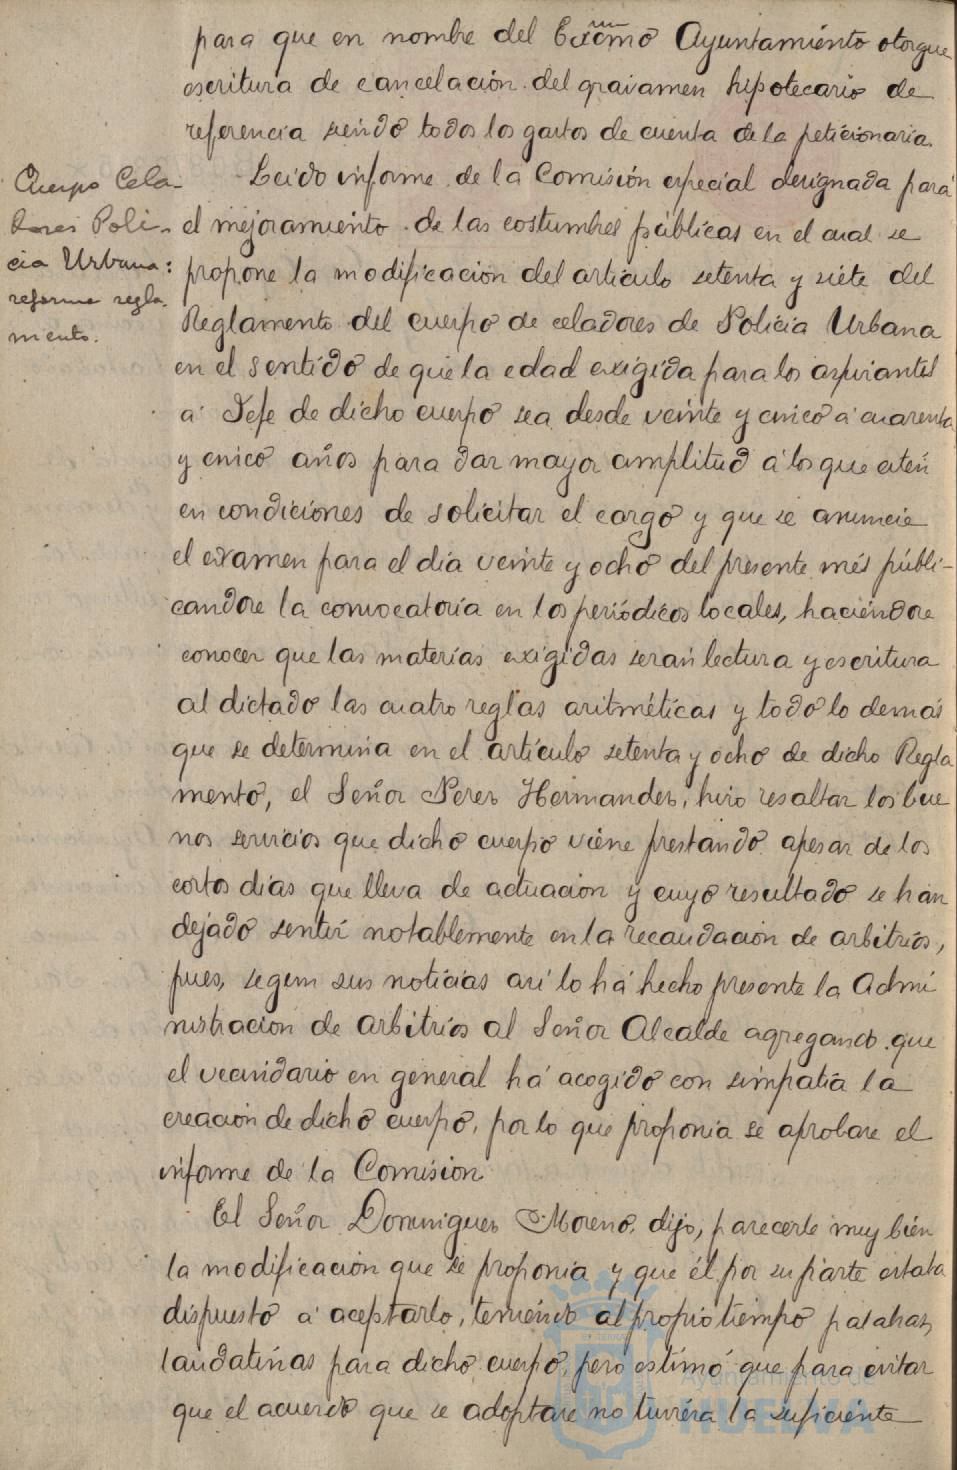 para que en nombre del Excmo Ayuntamiento otorgue
escritura de cancelación del gravamen hipotecario de
referencia siendo todos los gastos de cuenta de la peticionaria.
Cuerpo Cela-
dores Poli-
cia Urbana:
reforma regla-
mento.
Leido informe de la Comisión especial designada para
el mejoramiento de las costumbres públicas en el cual se
propone la modificación del artículo setenta y siete del
Reglamento del cuerpo de celadores de Policia Urbana
en el sentido de que la edad exigida para los aspirantes
a Jefe de dicho cuerpo sea desde veinte y cinco á cuarenta
y cinco años para dar mayor amplitud á los que esten
en condiciones de solicitar el cargo y que se anuncie
el examen para el dia veinte y ocho del presente mes públi-
candose la convocatoria en los periódicos locales, haciéndose
conocer que las materias exigidas serán lectura y escritura
al dictado las cuatro reglas aritméticas y todo lo demás
que se determina en el artículo setenta y ocho de dicho Regla
mento, el Señor Perez Hernandez, hizo resaltar los bue
nos servicios que dicho cuerpo viene prestando apesar de los
cortos dias que lleva de actuación y cuyo resultado se han
dejado sentir notablemente en la recaudación de arbitrios,
pues, segun sus noticias asi lo há hecho presente la Admi
nistración de Arbitrios al Señor Alcalde agregando que
el vecindario en general há acogido con simpatía la
creación de dicho cuerpo, por lo que proponia se aprobase el
informe de la Comision
El Señor Dominguez Moreno, dijo, parecerle muy bien
la modificación que se proponia y que él por su parte estaba
dispuesto á aceptarlo, teniendo al propio tiempo palabras
laudatívas para dicho cuerpo, pero estimó que para evitar
que el acuerdo que se adoptase no tuviera la suficiente
Ayuntamiento de
HUELVA